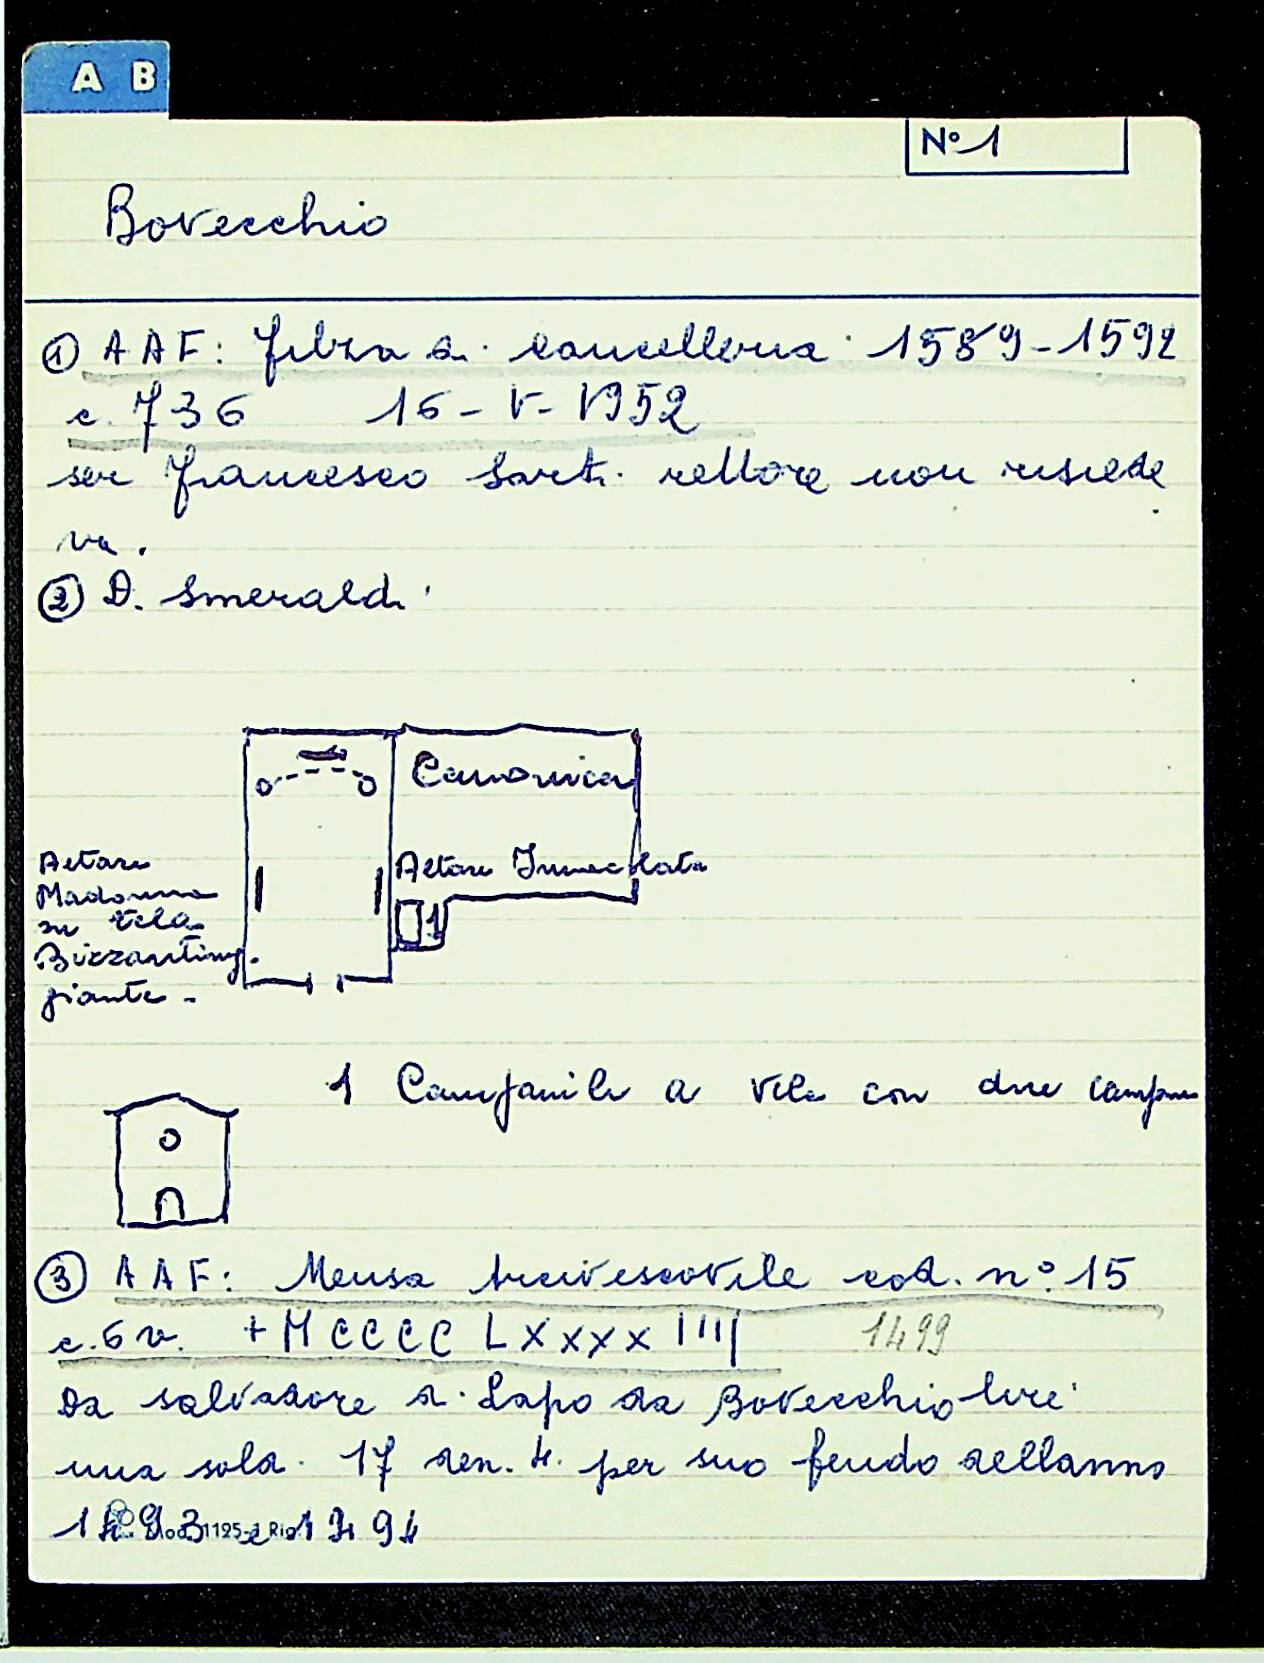 A B
N° 1
Bovecchio
① AAF: filza di cancelleria 1589-1592
c. 736 16-V-1952
ser Francesco Sarti rettore non risiede
va.
② D. Smeraldi
Canonica
Altare
Madonna
su tela
Bizzantineg-
giante -
Altare Immacolata
1
1 Campanile a vela con due campane
③ AAF: Mensa Arcivescovile cod. n° 15
c. 6 v. + M CCCC LXXXX IIII 1499
Da salvadore di Lapo da Bovecchio lire
una sold. 17 den. 4. per suo feudo dellanno
1493 e 1494